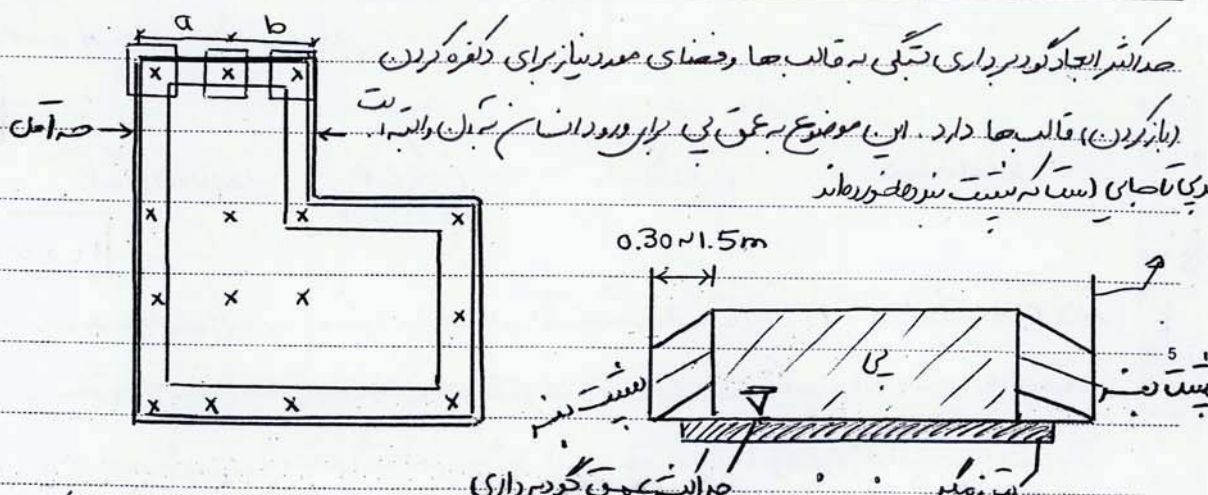 a b
حداکثر ابعاد گودبرداری بستگی به قالب ها و فضای مورد نیاز برای دکفره کردن
(باز کردن) قالب ها دارد. این موضوع به عمق پی برای ورود انسان به آن وابسته است
تا جایی است که پشت بند خورده‌اند
0.30~1.5m
پی
5
پشت بند
پشت بند
بتن مگر
حداکثر عمق گودبرداری